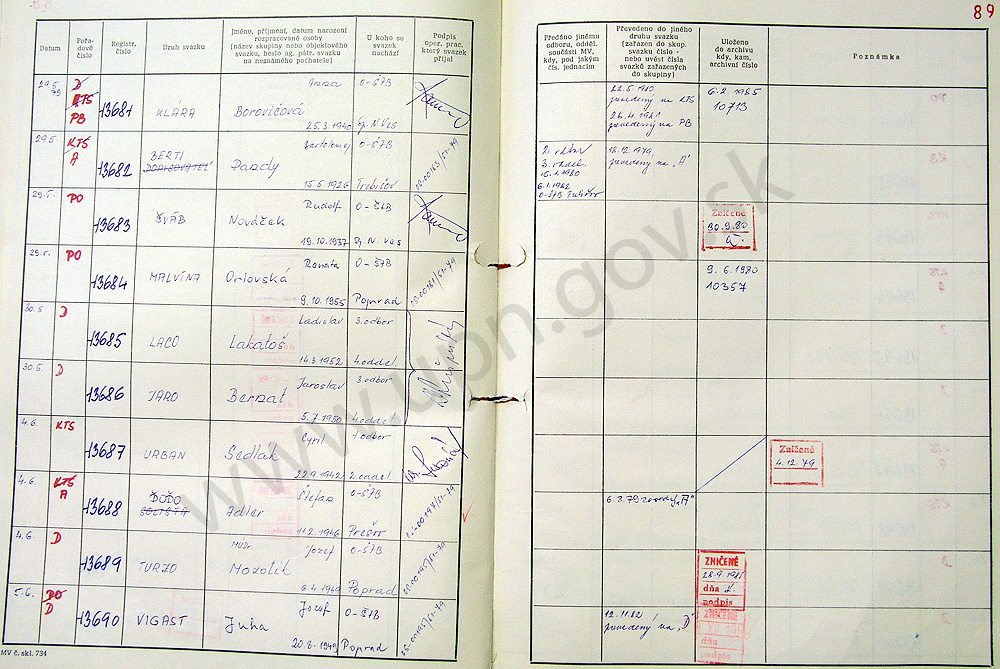 89
Datum
Pořadové číslo
Registr. číslo
Druh svazku
Jméno, příjmení, datum narození rozpracované osoby (název skupiny nebo objektového svazku, heslo ag. pátr. svazku na neznámého pachatele)
U koho se svazek nachází
Podpis oper. prac. který svazek přijal
Předáno jinému odboru, odděl. součásti MV, kdy, pod jakým čís. jednacím
Převedeno do jiného druhu svazku (zařazen do skup. svazku číslo - nebo uvést čísla svazků zařazených do skupiny)
Uloženo do archivu kdy, kam, archivní číslo
Poznámka
29.5 79 D KTS PB 13681 KLÁRA Anna Borovičová 25.3.1940 O-ŠTB Sp. N. Ves
22.5.1980 prevedený na KTS
28.4.1981 prevedený na PB
6.2.1985
10713
29.5 KTS A 13682 BERTI DOPISOVATEĽ Bartolomej Pandy 15.5.1926 O-ŠTB Trebišov
3. oddel.
O-ŠTB Trebišov
18.12.1979 prevedený na "A"
29.5. PO 13683 ŠVÁB Rudolf Nováček 19.10.1937 O-ŠtB Sp. N. Ves
Zničené
30.9.80
29.5. PO 13684 MALVÍNA Renata Orlovská 9.10.1955 O-ŠTB Poprad
9.6.1980
10357
30.5 D 13685 LACO Ladislav Lakatoš 14.3.1952 3.odbor 4.oddel.
30.5. D 13686 JARO Jaroslav Bernat 5.7.1950 3.odbor 4.oddel
4.6. KTS 13687 URBAN Cyril Sedlák 22.9.1942 1.odbor 2.oddel.
Zničené
4.12.79
4.6. KTS A 13688 ĎOĎO SOLISTA Štefan Adler 11.2.1946 O-ŠTB Prešov
6.8.79 "A"
4.6 D 13689 TURZO MUDr Jozef Mozolík 6.4.1949 O-ŠTB Poprad
ZNIČENÉ
28.9.1981
dňa
podpis
5.6. PO D 13690 VIGAST Jozef Juha 20.8.1941 O-ŠtB Poprad
12.11.82 prevedený na "D"
ZNIČENÉ
dňa
podpis
MV č. skl. 734
www.upn.gov.sk